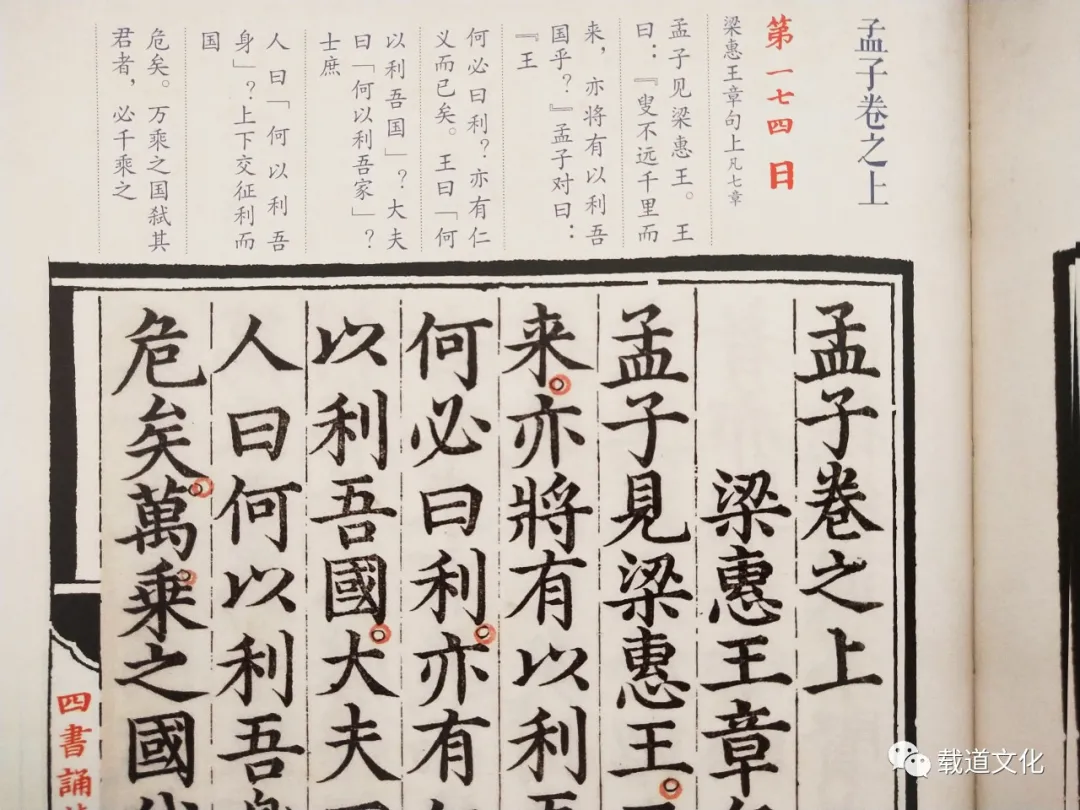 孟子卷之上
第一七四日
梁惠王章句上凡七章
孟子见梁惠王。王
曰：『叟不远千里而
来，亦将有以利吾
国乎？』孟子对曰：
『王
何必曰利？亦有仁
义而已矣。王曰「何
以利吾国」？大夫
曰「何以利吾家」？
士庶
人曰「何以利吾
身」？上下交征利而
国
危矣。万乘之国弑其
君者，必千乘之
孟子卷之上
梁惠王章
孟子見梁惠王
来亦將有以利
何必曰利亦有
以利吾國大夫
人曰何以利吾
危矣萬乘之國
四書誦
载道文化